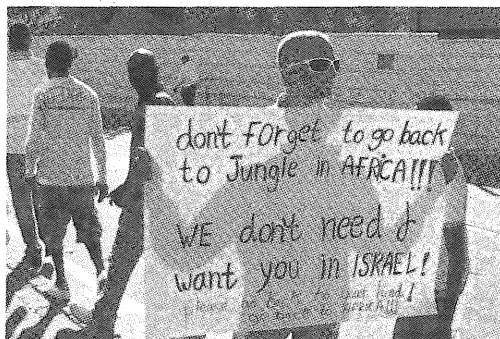 don't FOrget to go back
to Jungle in AFRiCA!!!
WE don't need &
want you in ISRAEL!
please go back to your land!
go back to AFRICA!!!